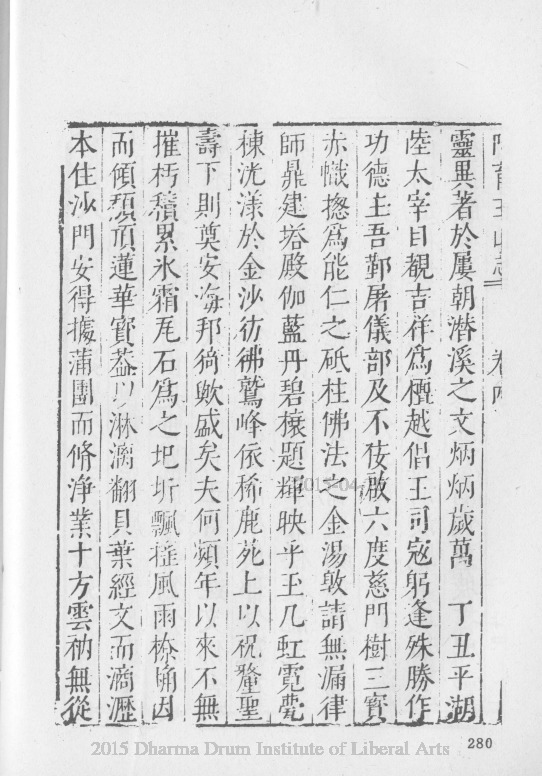 阿育王山志 卷四
靈異著於屢朝潛溪之文炳炳歲萬 丁丑平湖
陸太宰目覩吉祥爲檀越倡王司寇躬逢殊勝作
功德主吾鄞屠儀部及不佞啟六度慈門樹三寶
赤幟揔爲能仁之砥柱佛法之金湯敦請無漏律
師鼎建塔殿伽藍丹碧榱題輝映乎玉几虹霓甍
棟洸漾於金沙彷彿鷲峰依稀鹿苑上以祝釐聖
壽下則奠安海邦猗歟盛矣夫何頻年以來不無
摧朽積累氷霜瓦石爲之圯坼飄搖風雨榱桷因
而傾頹頂蓮華寶葢以淋漓翻貝葉經文而滴瀝
本住沙門安得據蒲團而脩淨業十方雲衲無從
280
2015 Dharma Drum Institute of Liberal Arts